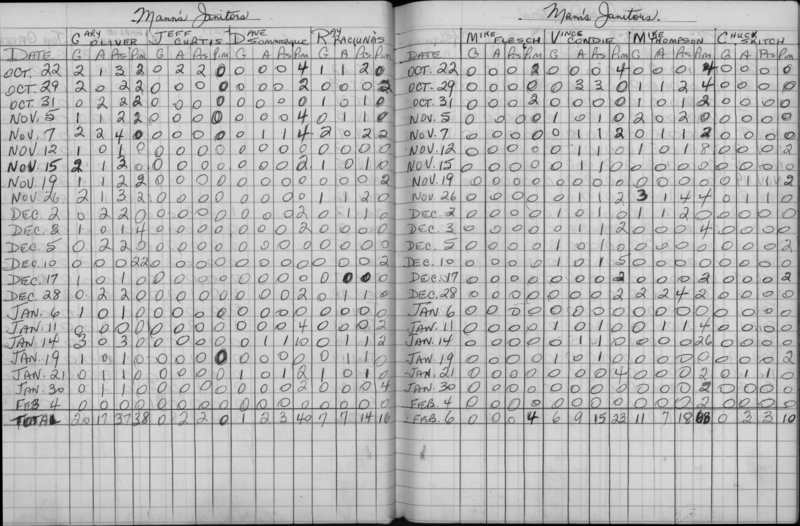 Mann's Janitors
GARY OLIVER JEFF CURTIS DAVE RAY RACIUNAS
DATE G A Pts Pim G A Pts Pim G A Pts Pim G A Pts Pim
OCT. 22 2 1 3 2 0 2 2 0 0 0 0 4 1 1 2 0
OCT. 29 2 0 2 2 0 0 0 0 0 0 0 2 0 0 0 2
OCT. 31 0 2 2 2 0 0 0 0 0 0 0 0 1 0 1 0
NOV. 5 1 1 2 2 0 0 0 0 0 0 0 4 0 1 1 0
NOV. 7 2 2 4 0 0 0 0 0 0 1 1 4 2 0 2 2
NOV. 12 1 0 1 0 0 0 0 0 0 0 0 0 0 0 0 0
NOV. 15 2 1 3 0 0 0 0 0 0 0 0 2 1 0 1 0
NOV. 19 1 1 2 2 0 0 0 0 0 0 0 0 0 0 0 2
NOV. 26 2 1 3 2 0 0 0 0 0 0 0 0 1 1 2 0
DEC. 2 0 2 2 0 0 0 0 0 0 0 0 2 0 1 1 0
DEC. 3 1 0 1 4 0 0 0 0 0 0 0 2 0 0 0 0
DEC. 5 0 2 2 0 0 0 0 0 0 0 0 0 0 0 0 0
DEC. 10 0 0 0 22 0 0 0 0 0 0 0 0 0 0 0 2
DEC. 17 1 0 1 0 0 0 0 0 0 0 0 0 0 0 0 0
DEC. 28 0 2 2 0 0 0 0 0 0 0 0 2 0 1 1 0
JAN. 6 1 0 1 0 0 0 0 0 0 0 0 0 0 0 0 0
JAN. 11 0 0 0 0 0 0 0 0 0 0 0 4 0 0 0 2
JAN. 14 3 0 3 0 0 0 0 0 0 1 1 10 0 1 1 2
JAN. 19 1 0 1 0 0 0 0 0 0 0 0 0 0 1 1 0
JAN. 21 0 1 1 0 0 0 0 0 1 0 1 2 1 0 1 0
JAN. 30 0 1 1 0 0 0 0 0 0 0 0 2 0 0 0 4
FEB 4 0 0 0 0 0 0 0 0 0 0 0 0 0 0 0 0
TOTAL 20 17 37 38 0 2 2 0 1 2 3 40 7 7 14 16
Mann's Janitors.
MIKE FLESCH VINCE CONDIE MIKE THOMPSON CHUCK SKITCH
DATE G A Pts Pim G A Pts Pim G A Pts Pim G A Pts Pim
OCT. 22 0 0 0 2 0 0 0 4 0 0 0 4 0 0 0 0
OCT. 29 0 0 0 0 0 3 3 0 1 1 2 4 0 0 0 0
OCT. 31 0 0 0 2 0 0 0 0 1 0 1 2 0 0 0 0
NOV. 5 0 0 0 0 1 0 1 0 2 0 2 0 0 0 0 0
NOV. 7 0 0 0 0 0 1 1 2 0 1 1 2 0 0 0 0
NOV. 12 0 0 0 0 0 1 1 0 1 0 1 8 0 0 0 2
NOV. 15 0 0 0 0 0 1 1 0 0 0 0 0 0 0 0 0
NOV. 19 0 0 0 0 0 0 0 0 0 0 0 0 0 1 1 2
NOV. 26 0 0 0 0 0 1 1 2 3 1 4 4 0 1 1 0
DEC. 2 0 0 0 0 1 0 1 0 1 1 2 0 0 0 0 0
DEC. 3 0 0 0 0 0 1 1 2 0 0 0 4 0 0 0 0
DEC. 5 0 0 0 0 1 0 1 0 0 0 0 0 0 0 0 2
DEC. 10 0 0 0 0 1 0 1 5 0 0 0 0 0 0 0 0
DEC. 17 0 0 0 0 0 0 0 2 0 0 0 2 0 0 0 2
DEC. 28 0 0 0 0 0 0 0 2 2 2 4 2 0 0 0 0
JAN 6 0 0 0 0 0 0 0 0 0 0 0 0 0 0 0 0
JAN. 11 0 0 0 0 1 0 1 0 0 1 1 4 0 0 0 0
JAN. 14 0 0 0 0 0 1 1 0 0 0 0 26 0 0 0 0
JAN. 19 0 0 0 0 1 0 1 0 0 0 0 0 0 0 0 2
JAN. 21 0 0 0 0 0 0 0 4 0 0 0 2 0 1 1 0
JAN. 30 0 0 0 0 0 0 0 0 0 0 0 2 0 0 0 0
FEB. 4 0 0 0 0 0 0 0 0 0 0 0 2 0 0 0 0
FEB. 6 0 0 0 4 6 9 15 23 11 7 18 68 0 3 3 10